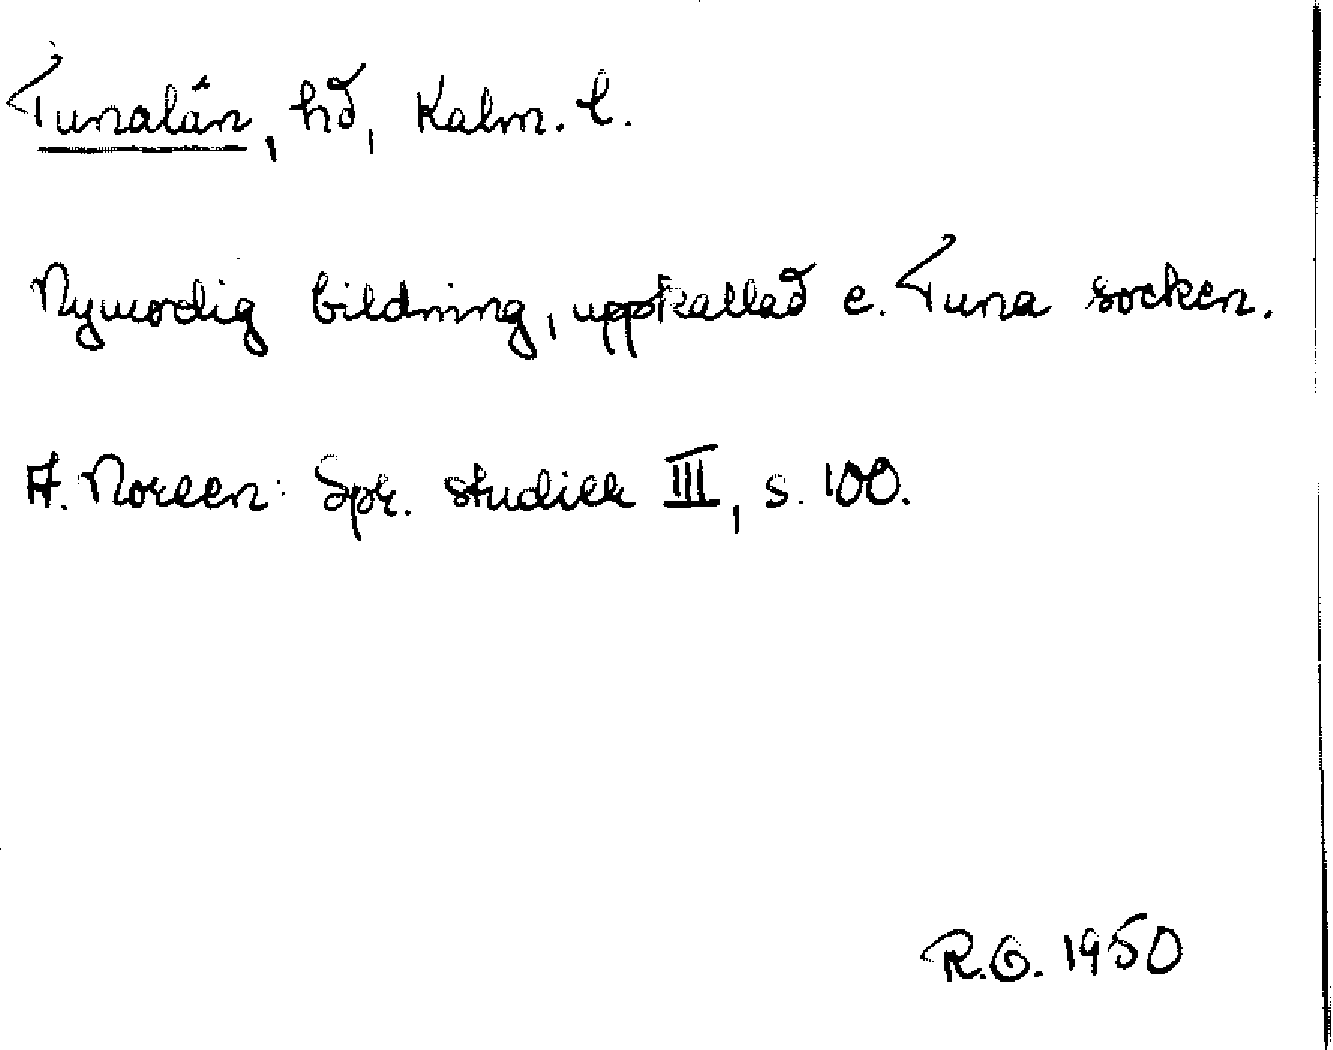 Tunalän, hd, Kalm. l.
Nymodig bildning, uppkallad e. Tuna socken.
A. Noreen: Spr. studier III, s. 100.
R.G. 1950